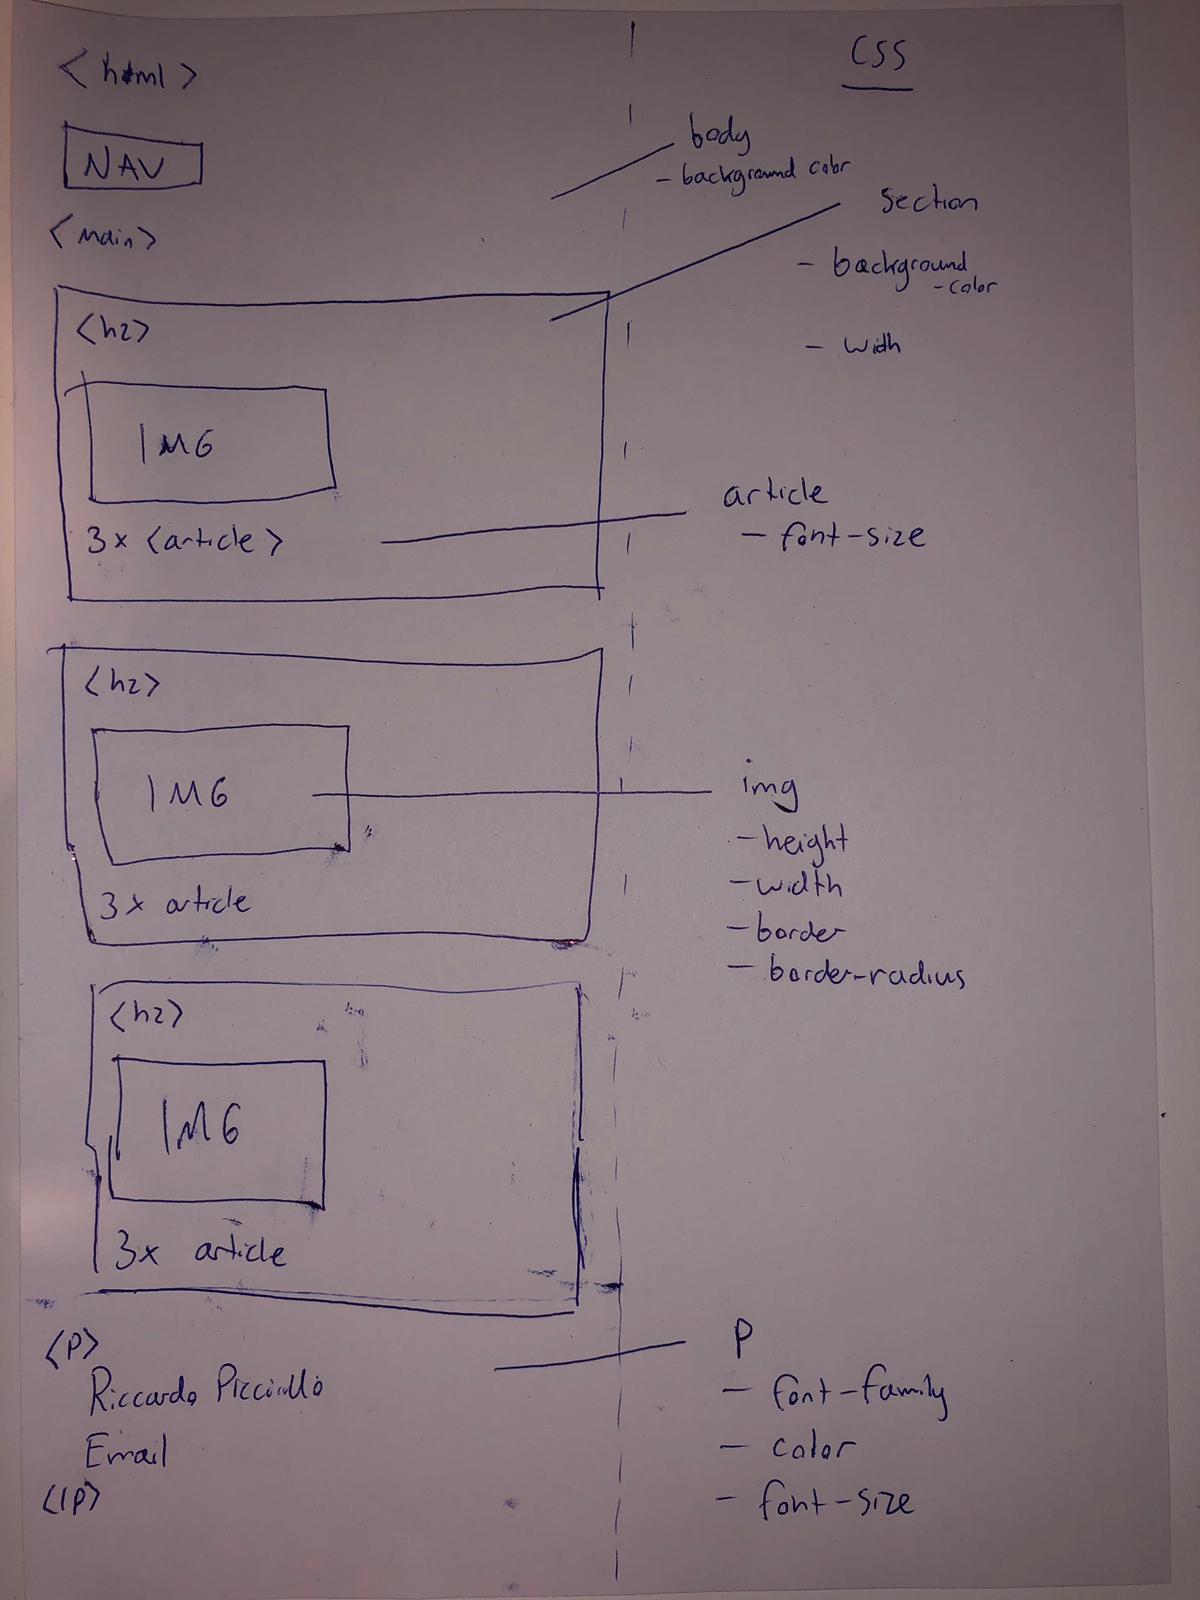 <html>
NAV
<main>
<h2>
IMG
3x <article>
<h2>
IMG
3x article
<h2>
IMG
3x article
<P>
Riccardo
Email
</P>
CSS
body
- background color
section
- background
- color
- width
article
- font-size
img
- height
- width
- border
- border-radius
P
- font-family
- color
- font-size